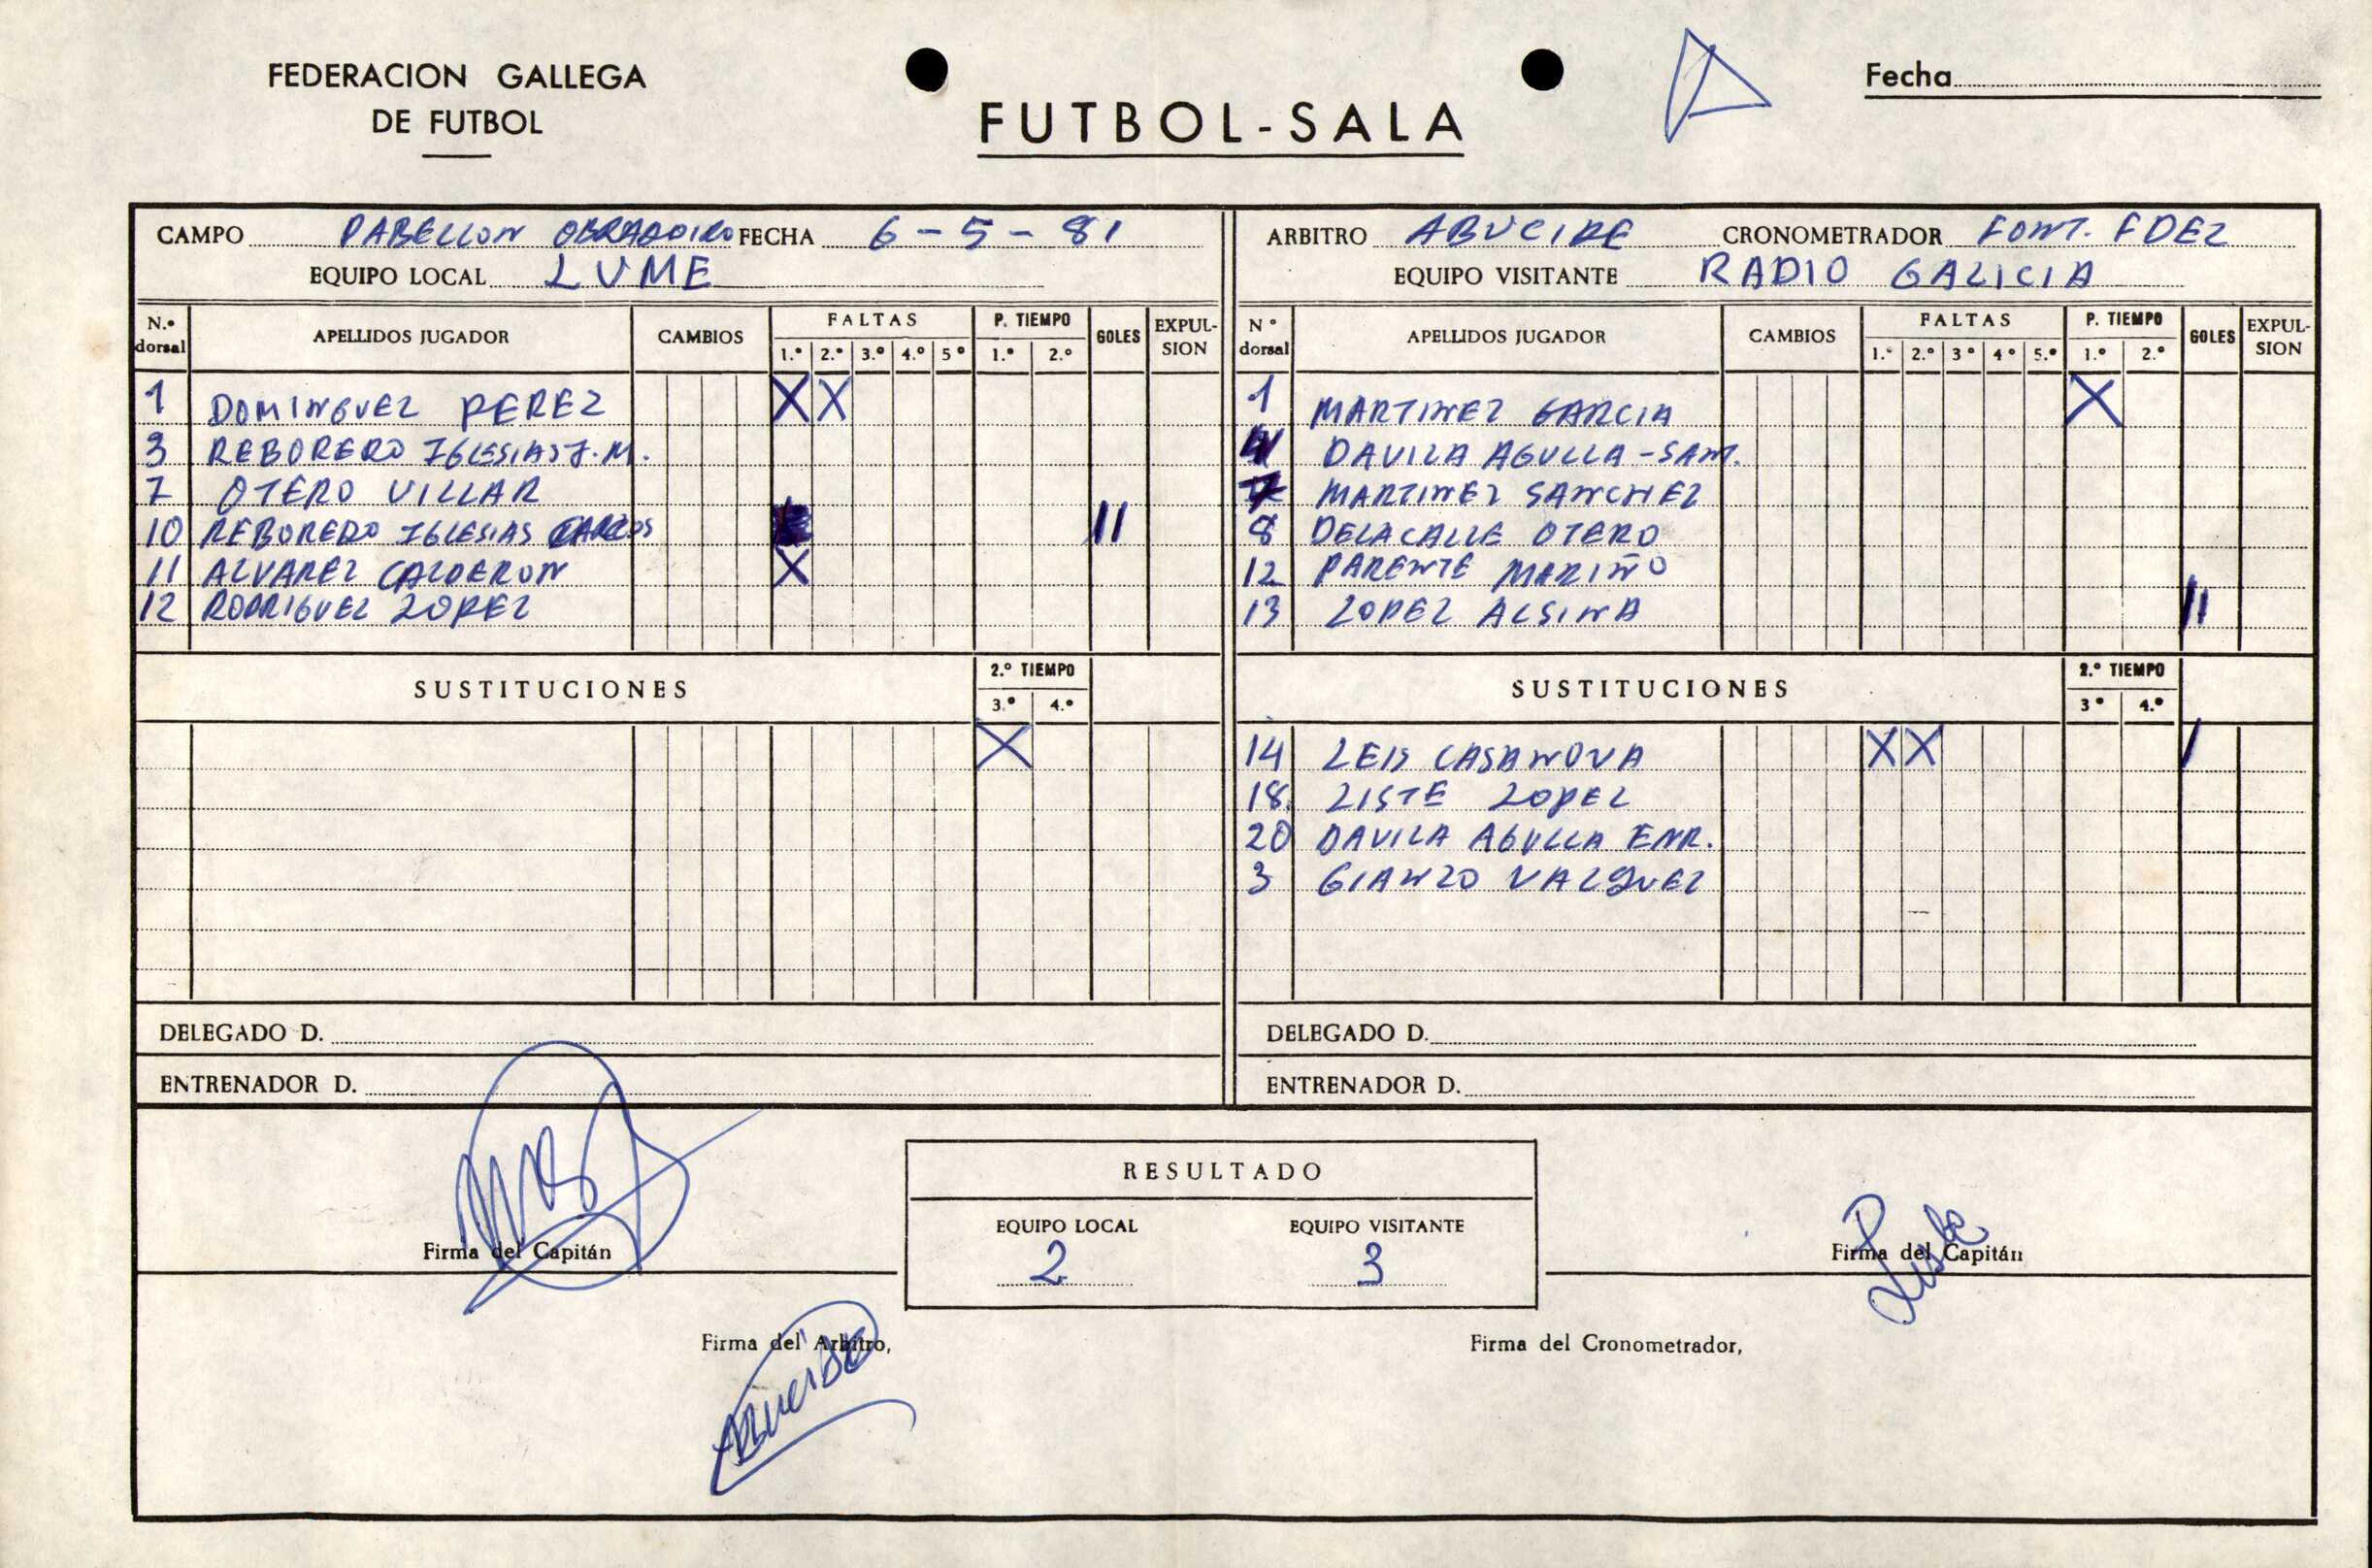 FEDERACION GALLEGA
DE FUTBOL
FUTBOL-SALA
Fecha
CAMPO PABELLON OBRADOIRO FECHA 6-5-81
EQUIPO LOCAL LUME
ARBITRO ABUEIDE CRONOMETRADOR FONT. FDEZ
EQUIPO VISITANTE RADIO GALICIA
N.º dorsal APELLIDOS JUGADOR CAMBIOS FALTAS 1.º 2.º 3.º 4.º 5º P. TIEMPO 1.º 2.º GOLES EXPUL-SION
1 DOMINGUEZ PEREZ X X
3 REBORERO IGLESIAS J.M.
7 OTERO VILLAR
10 REBOREDO IGLESIAS CARLOS II
11 ALVAREZ CALDERON X
12 RODRIGUEZ LOPEZ
SUSTITUCIONES 2.º TIEMPO 3.º 4.º
X
DELEGADO D.
ENTRENADOR D.
N º dorsal APELLIDOS JUGADOR CAMBIOS FALTAS 1.º 2.º 3º 4º 5.º P. TIEMPO 1.º 2.º GOLES EXPUL-SION
1 MARTINEZ GARCIA X
4 DAVILA AGULLA-SANT.
7 MARTINEZ SANCHEZ
8 DELACALLE OTERO
12 PARENTE MARIÑO
13 LOPEZ ALSINA II
SUSTITUCIONES 2.º TIEMPO 3º 4.º
14 LEIS CASANOVA X X I
18 LISTE LOPEZ
20 DAVILA AGULLA ENR.
3 GIANZO VAZQUEZ
DELEGADO D.
ENTRENADOR D.
RESULTADO
EQUIPO LOCAL EQUIPO VISITANTE
2 3
Firma del Capitán
Firma del Capitán
Liste
Firma del Arbitro,
Abueide
Firma del Cronometrador,